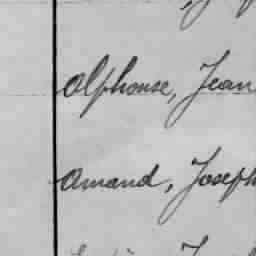 Alphonse, Jean
Amand, Joseph